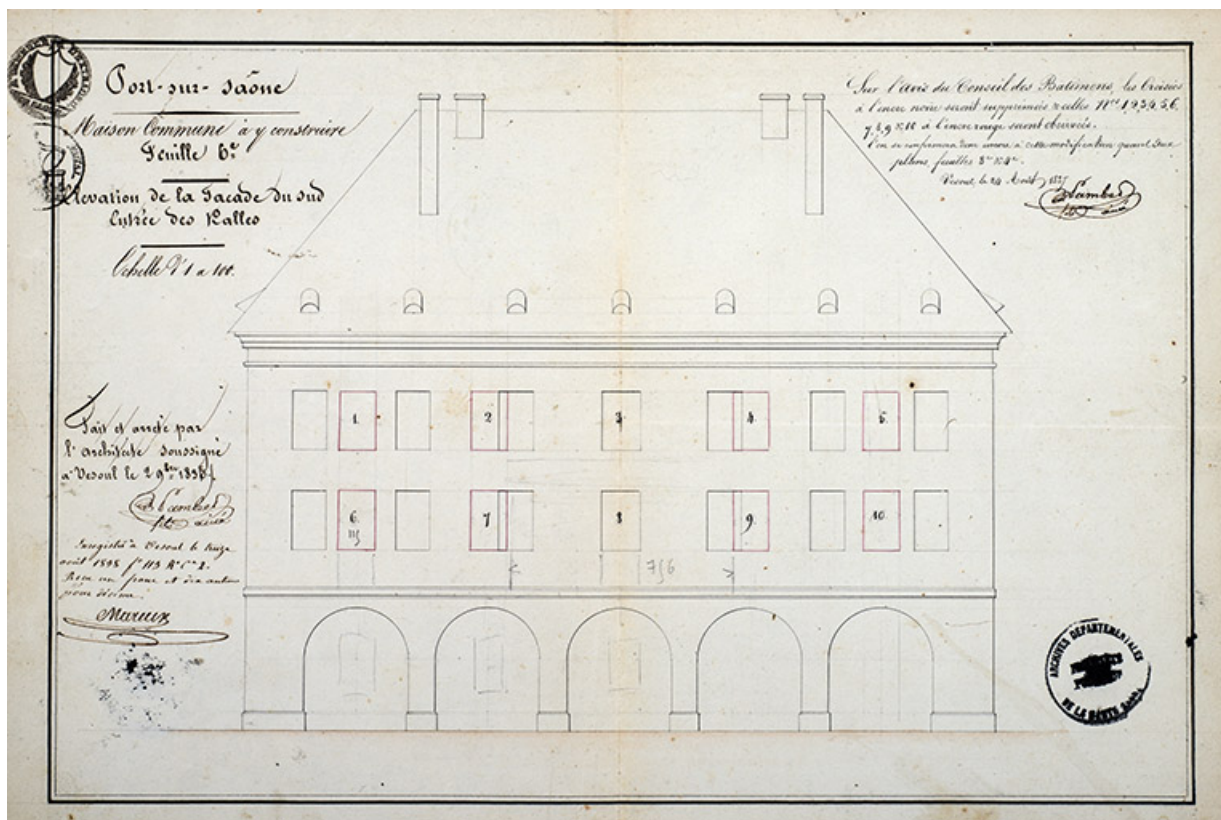 Port-sur-Saône
Maison Commune à y construire
Feuille 6e
Elevation de la Facade du Sud
Entrée des Halles
Echelle d'1 a 100.
Sur l'avis du Conseil des Batimens, les Croisées
à l'encre noire seront supprimées & celles Nos 1,2,3,4,5,6,
7,8,9 & 10 à l'encre rouge seront observées.
l'on se conformera donc encore à cette modification quant aux
plans, feuilles 3e & 4e.
Vesoul, le 24 Août
1 2 3 4 5
6 7 8 9 10
756
Fait et arrêté par
l'architecte soussigné
a Vesoul le 2 9bre
Enregistré à Vesoul le
août 1838 f° 113 R° C° 2.
Reçu un franc et dix centimes
pour décime.
ARCHIVES DEPARTEMENTALES
DE LA HAUTE SAONE